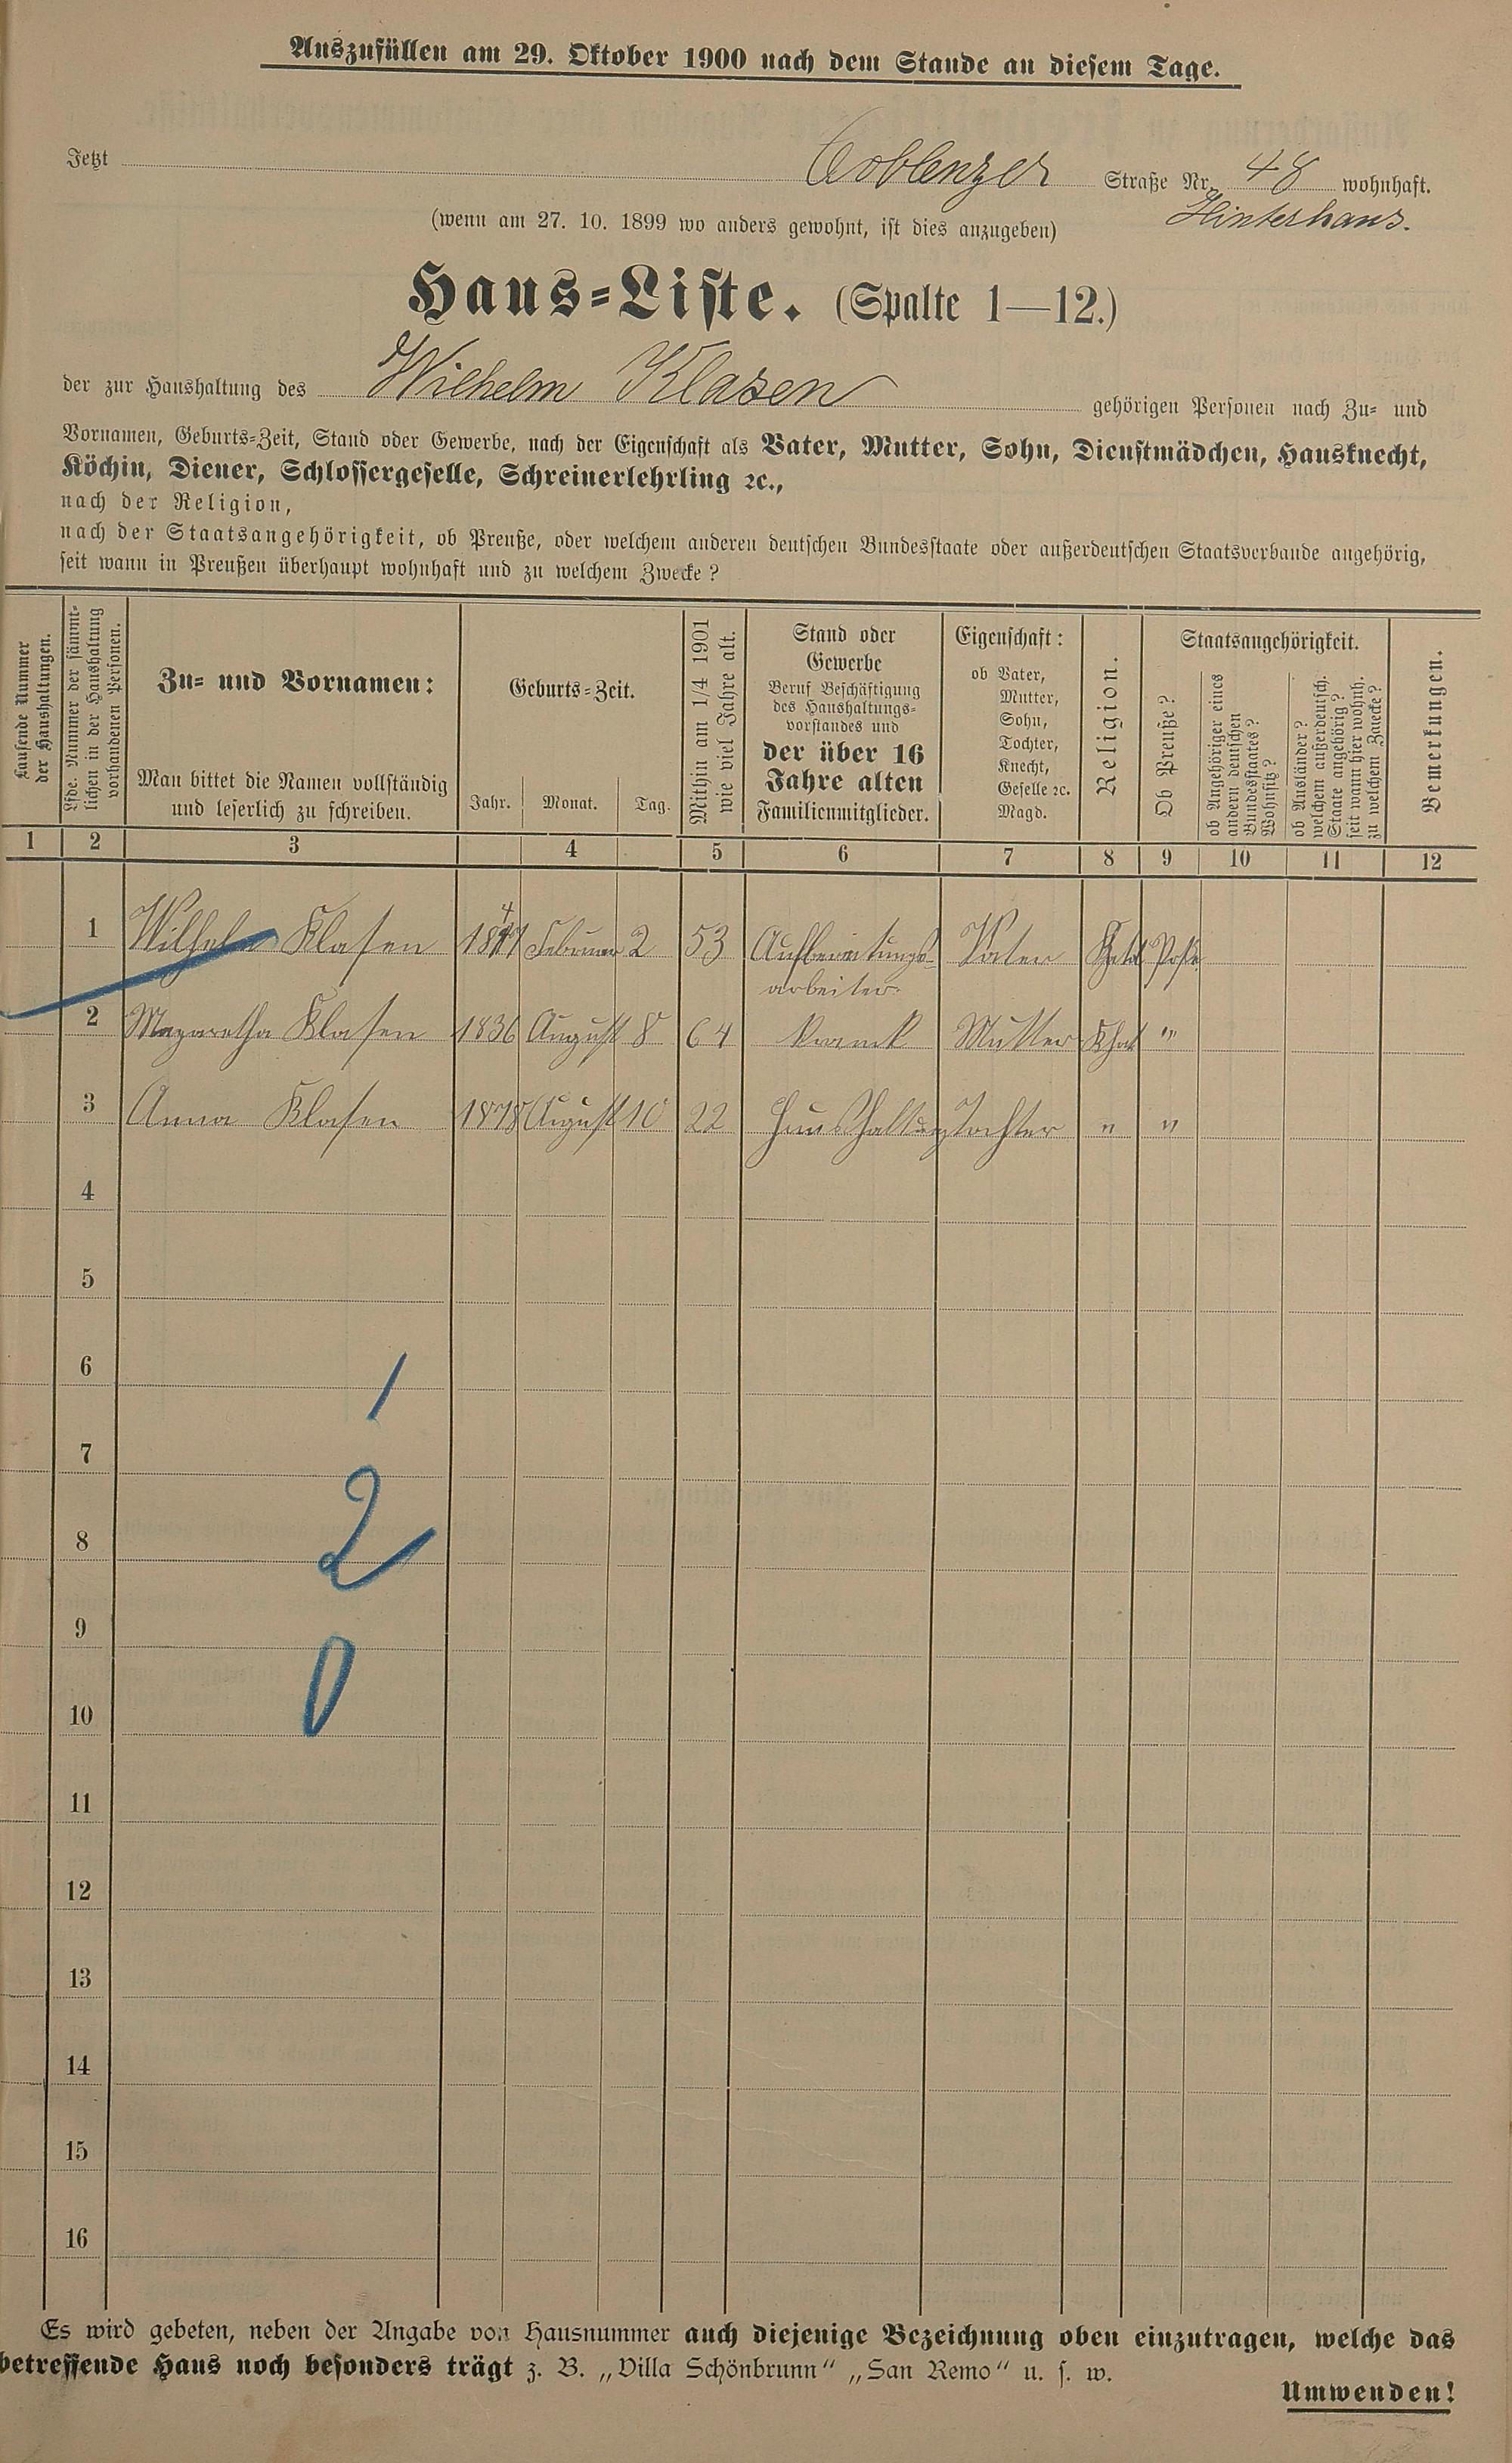 Auszufüllen am 29. Oktober 1900 nach dem Stande an diesem Tage.
Jetzt Coblenzer Straße Nr. 48 wohnhaft.
(wenn am 27. 10. 1899 wo anders gewohnt, ist dies anzugeben) Hinterhaus.
Haus-Liste. (Spalte 1—12.)
der zur Haushaltung des Wilhelm Klasen gehörigen Personen nach Zu- und
Vornamen, Geburts-Zeit, Stand oder Gewerbe, nach der Eigenschaft als Vater, Mutter, Sohn, Dienstmädchen, Hausknecht,
Köchin, Diener, Schlossergeselle, Schreinerlehrling ꝛc.,
nach der Religion,
nach der Staatsangehörigkeit, ob Preuße, oder welchem anderen deutschen Bundesstaate oder außerdeutschen Staatsverbande angehörig,
seit wann in Preußen überhaupt wohnhaft und zu welchem Zwecke?
Laufende Nummer
der Haushaltungen.
Lfde. Nummer der sämmt-
lichen in der Haushaltung
vorhandenen Personen.
Zu- und Vornamen:
Man bittet die Namen vollständig
und leserlich zu schreiben.
Geburts-Zeit.
Jahr. Monat. Tag.
Mithin am 1/4 1901
wie viel Jahre alt.
Stand oder
Gewerbe
Beruf Beschäftigung
des Haushaltungs-
vorstandes und
der über 16
Jahre alten
Familienmitglieder.
Eigenschaft:
ob Vater,
Mutter,
Sohn,
Tochter,
Knecht,
Geselle ꝛc.
Magd.
Religion.
Staatsangehörigkeit.
Ob Preuße?
ob Angehöriger eines
andern deutschen
Bundesstaates?
Wohnsitz?
ob Ausländer?
welchem außerdeutsch.
Staate angehörig?
seit wann hier wohnh.
zu welchem Zwecke?
Bemerkungen.
1 2 3 4 5 6 7 8 9 10 11 12
1 Wilhelm Klasen 1847 Februar 2 53 Aufbereitungs- Vater
arbeiter
2 Margaretha Klasen 1836 August 8 64 krank Mutter Kath "
3 Anna Klasen 1878 August 10 22 Haushaltung Tochter " "
4
5
6
1
7
2
8
9
0
10
11
12
13
14
15
16
Es wird gebeten, neben der Angabe von Hausnummer auch diejenige Bezeichnung oben einzutragen, welche das
betreffende Haus noch besonders trägt z. B. „Villa Schönbrunn“ „San Remo“ u. s. w.
Umwenden!